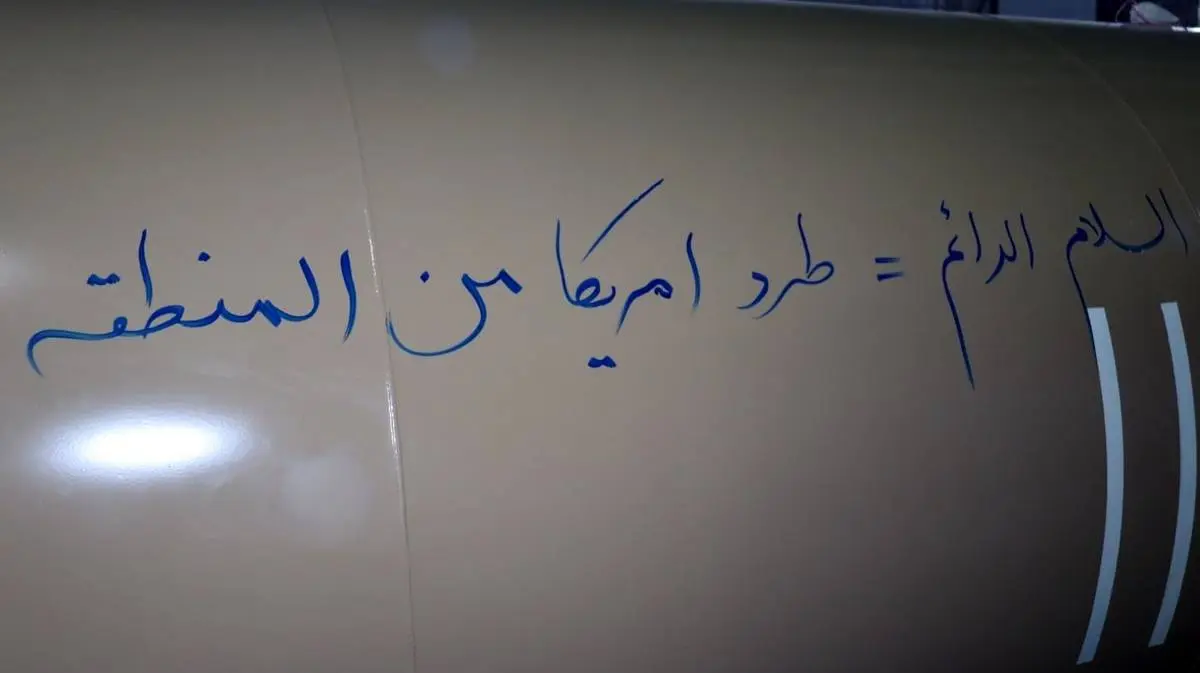 السلام الدائم = طرد امريكا من المنطقه